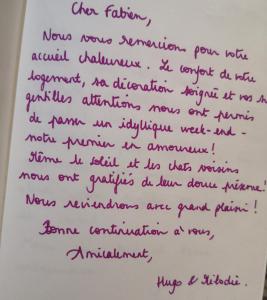 Cher Fabien,
Nous vous remercions pour votre
accueil chaleureux. Le confort de votre
logement, sa décoration soignée et vos
gentilles attentions nous ont permis
de passer un idyllique week-end -
notre premier en amoureux!
Même le soleil et les chats voisins
nous ont gratifiés de leur douce présence!
Nous reviendrons avec grand plaisir!
Bonne continuation à vous,
Amicalement,
Hugo & Mélodie.